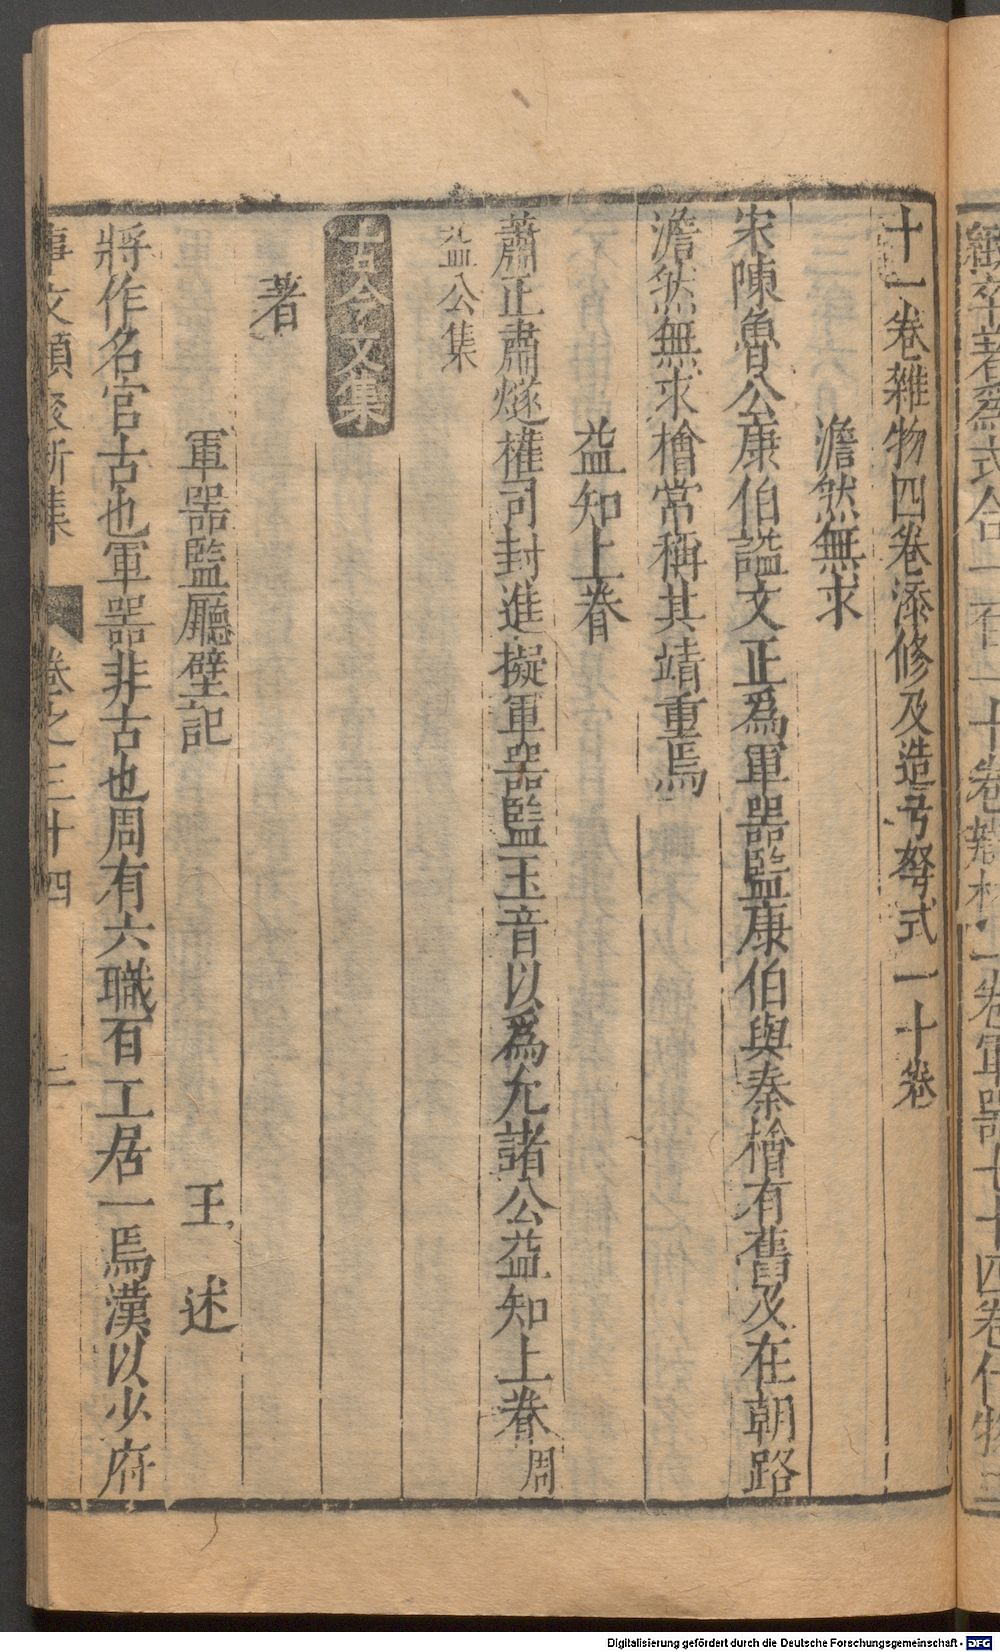 十一卷雜物四卷添修及造弓弩式一十卷
澹然無求
宋陳魯公康伯謚文正爲軍器監康伯與秦檜有舊及在朝路
澹然無求檜常稱其靖重焉
益知上眷
蕭正肅燧權司封進擬軍器監玉音以爲允諸公益知上眷周
益公集
古今文集
著
軍器監廳壁記 王述
將作名官古也軍器非古也周有六職百工居一焉漢以少府
事文類聚新集 卷之三十四
Digitalisierung gefördert durch die Deutsche Forschungsgemeinschaft - DFG